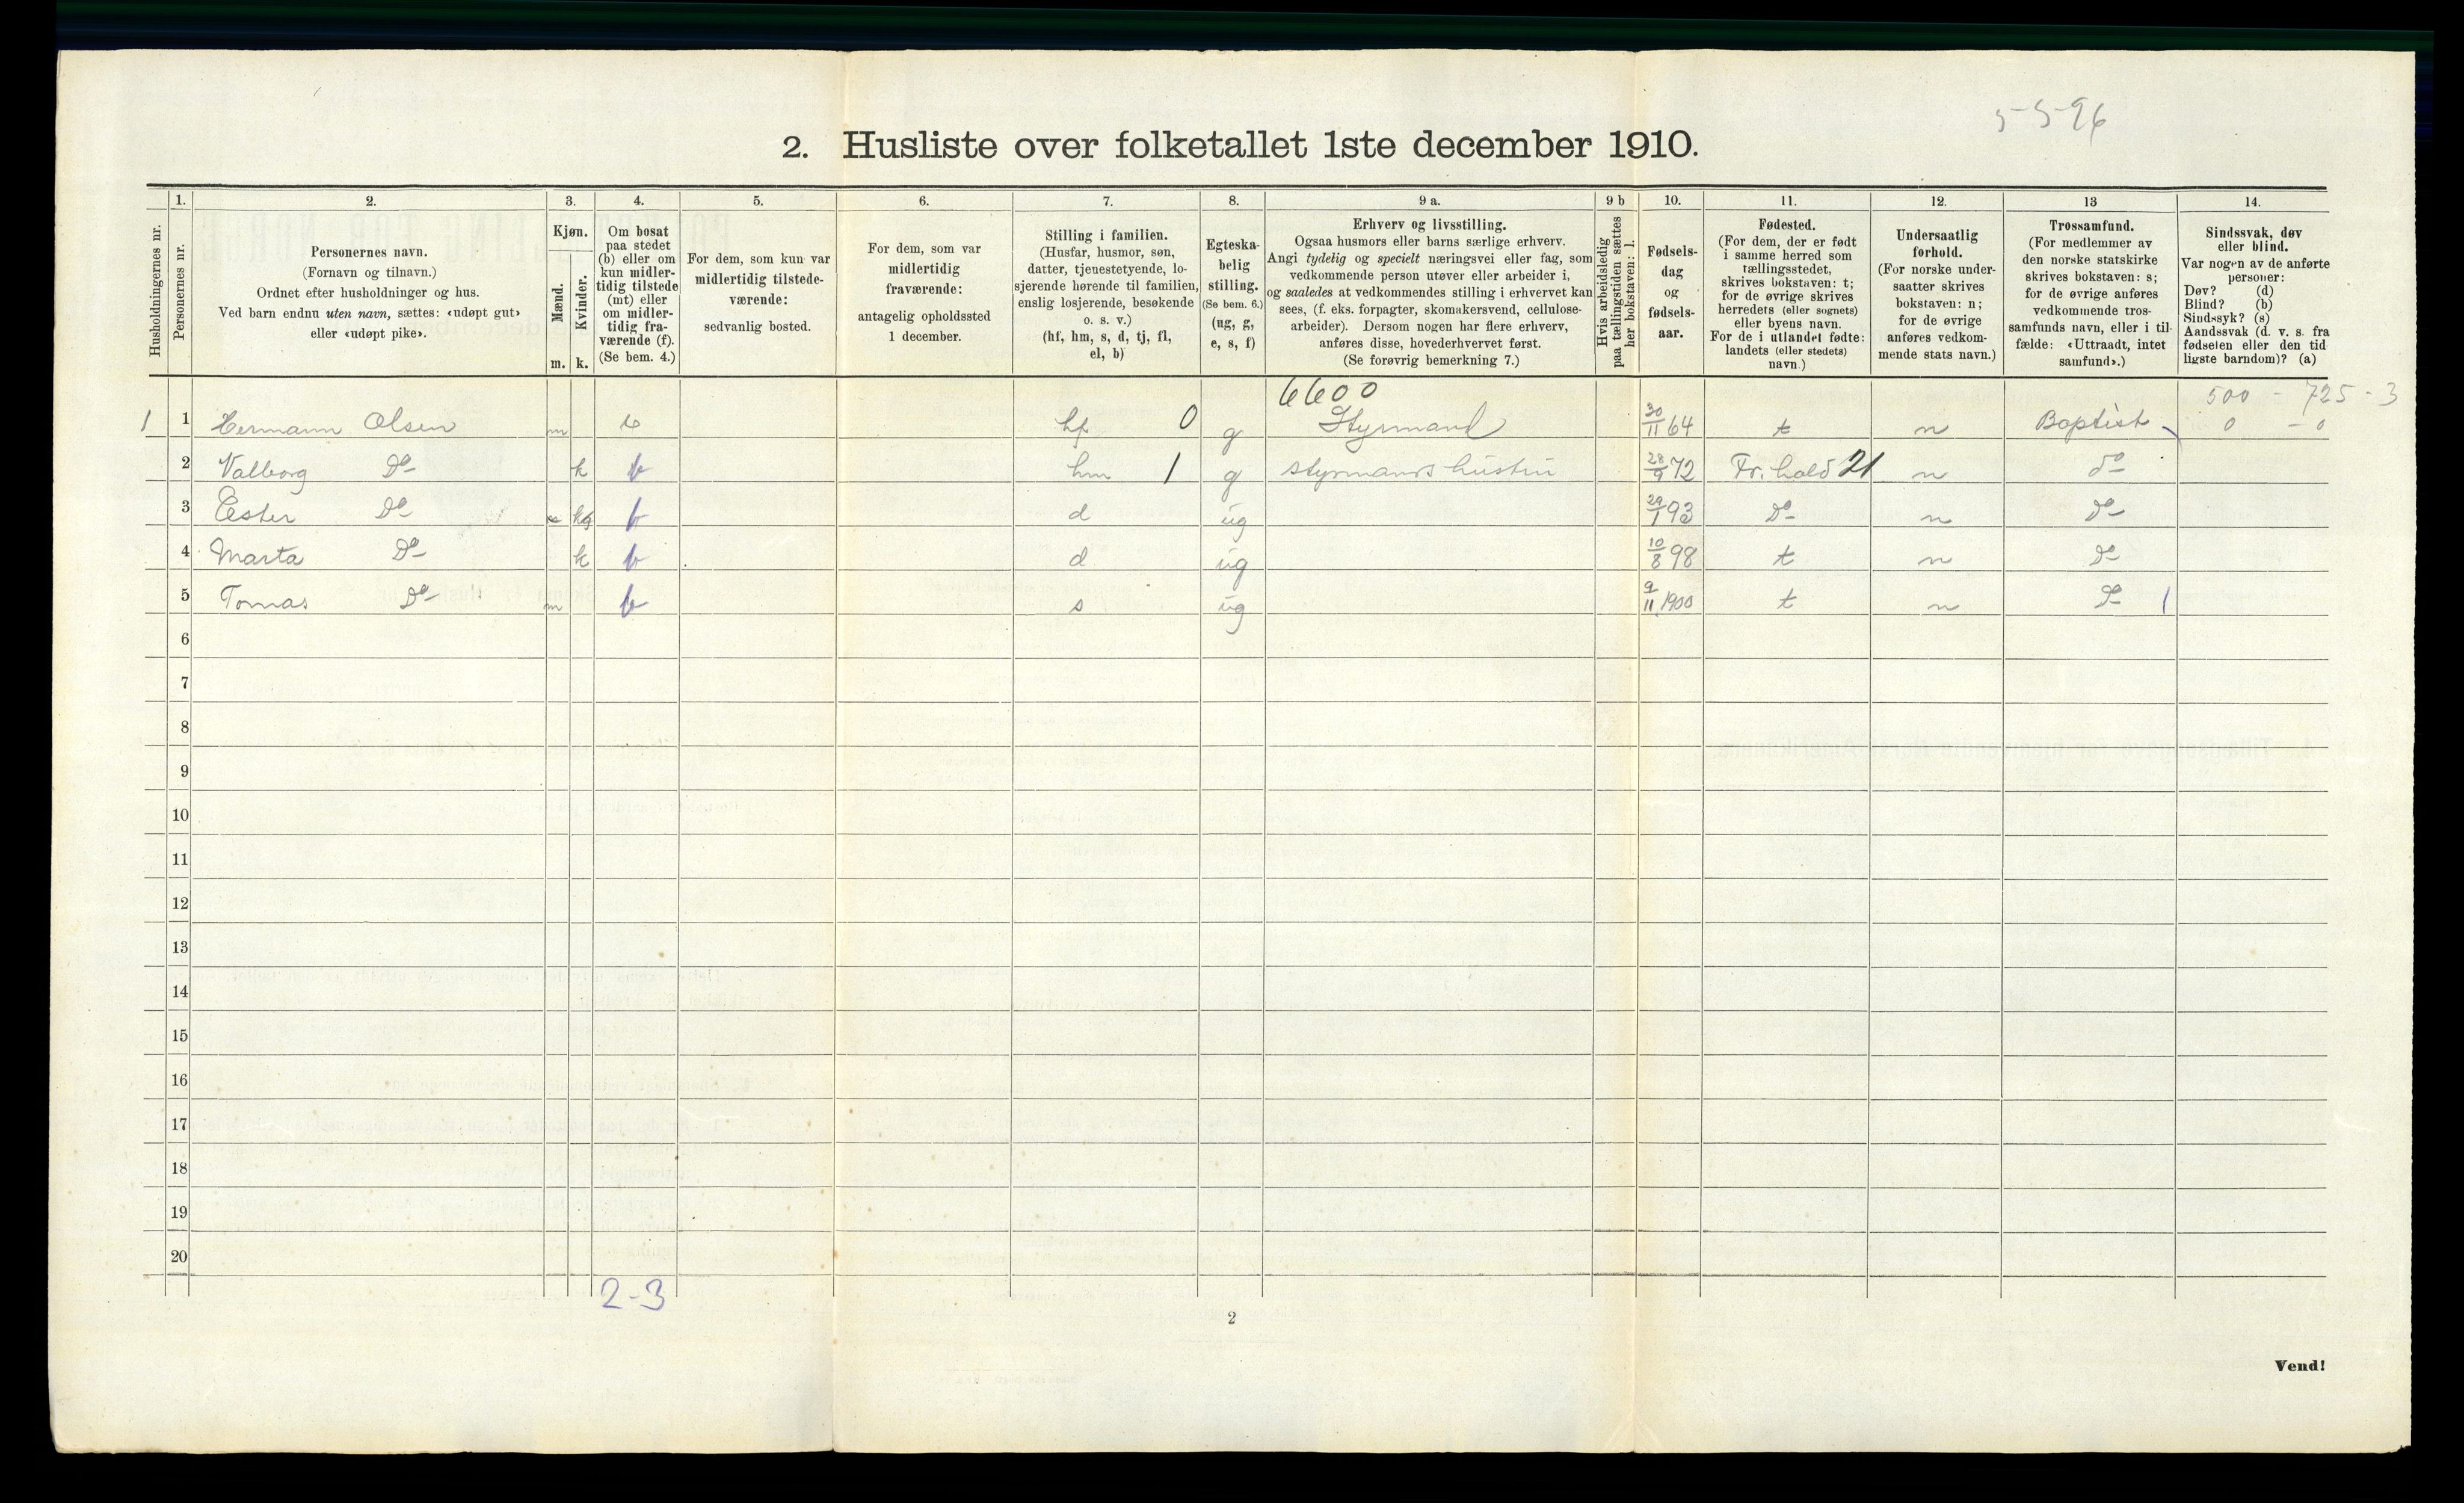 5-5-96
2. Husliste over folketallet 1ste december 1910.
Husholdningernes nr.
1.
Personernes nr.
2.
Personernes navn.
(Fornavn og tilnavn.)
Ordnet efter husholdninger og hus.
Ved barn endnu uten navn, sættes: «udøpt gut»
eller «udøpt pike».
3.
Kjøn.
Mænd.
Kvinder.
m. k.
4.
Om bosat
paa stedet
(b) eller om
kun midler-
tidig tilstede
(mt) eller
om midler-
tidig fra-
værende (f).
(Se bem. 4.)
5.
For dem, som kun var
midlertidig tilstede-
værende:
sedvanlig bosted.
6.
For dem, som var
midlertidig
fraværende:
antagelig opholdssted
1 december.
7.
Stilling i familien.
(Husfar, husmor, søn,
datter, tjenestetyende, lo-
sjerende hørende til familien,
enslig losjerende, besøkende
o. s. v.)
(hf, hm, s, d, tj, fl,
el, b)
8.
Egteska-
belig
stilling.
(Se bem. 6.)
(ug, g,
e, s, f)
9 a.
Erhverv og livsstilling.
Ogsaa husmors eller barns særlige erhverv.
Angi tydelig og specielt næringsvei eller fag, som
vedkommende person utøver eller arbeider i,
og saaledes at vedkommendes stilling i erhvervet kan
sees, (f. eks. forpagter, skomakersvend, cellulose-
arbeider). Dersom nogen har flere erhverv,
anføres disse, hovederhvervet først.
(Se forøvrig bemerkning 7.)
9 b
Hvis arbeidsledig
paa tællingstiden sættes
her bokstaven: l.
10.
Fødsels-
dag
og
fødsels-
aar.
11.
Fødested.
(For dem, der er født
i samme herred som
tællingsstedet,
skrives bokstaven: t;
for de øvrige skrives
herredets (eller sognets)
eller byens navn.
For de i utlandet fødte:
landets (eller stedets)
navn.)
12.
Undersaatlig
forhold.
(For norske under-
saatter skrives
bokstaven: n;
for de øvrige
anføres vedkom-
mende stats navn.)
13
Trossamfund.
(For medlemmer av
den norske statskirke
skrives bokstaven: s;
for de øvrige anføres
vedkommende tros-
samfunds navn, eller i til-
fælde: «Uttraadt, intet
samfund».)
14.
Sindssvak, døv
eller blind.
Var nogen av de anførte
personer:
Døv? (d)
Blind? (b)
Sindssyk? (s)
Aandssvak (d. v. s. fra
fødselen eller den tid
ligste barndom)? (a)
6600
500 - 725 - 3
1 1 Hermann Olsen m b hf 0 g Styrmand 30/11 64 t n Baptist 0 - 0
2 Valborg Do k b hm 1 g styrmands hustru 28/9 72 Fr.hald 21 n do
3 Ester Do k b d ug 29/1 93 Do n Do
4 Marta Do k b d ug 10/8 98 t n Do
5 Tomas Do m b s ug 9/11 1900 t n Do 1
6
7
8
9
10
11
12
13
14
15
16
17
18
19
20
2-3
2
Vend!